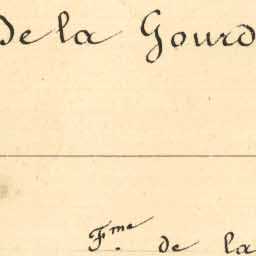 de la Gourd
Fme de la